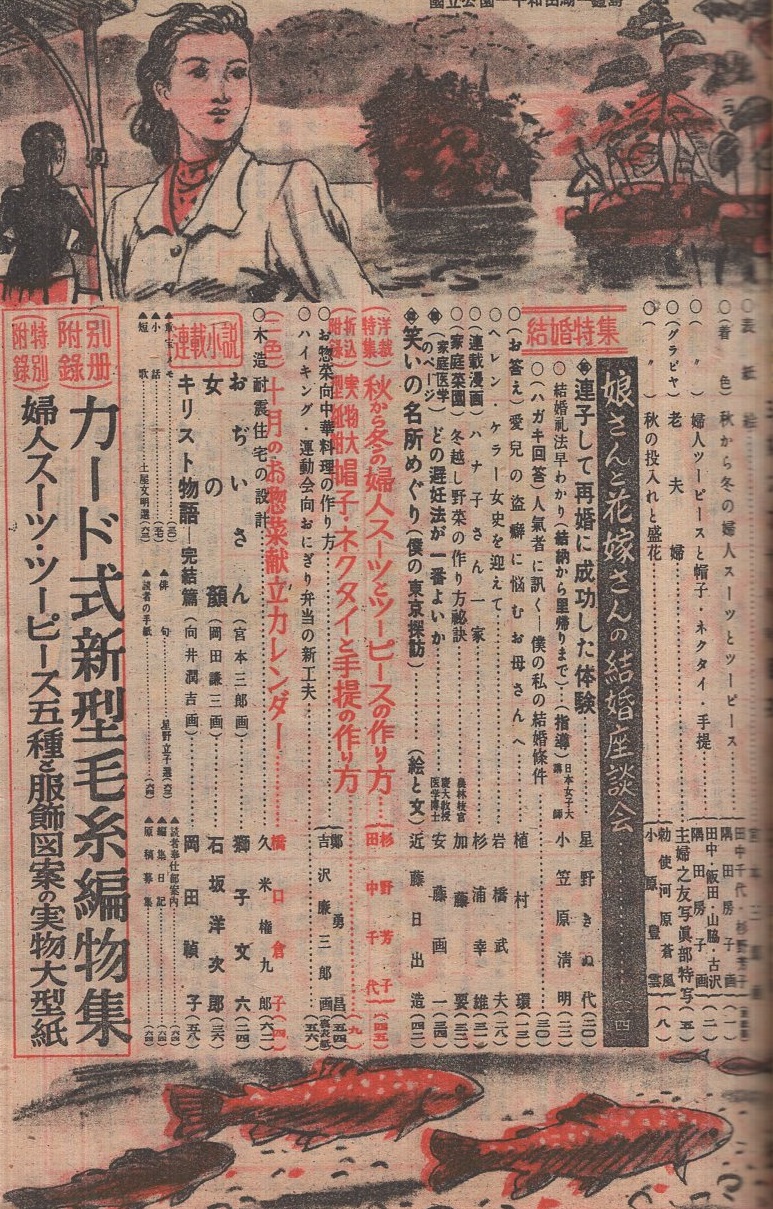 國立公園―十和田湖―
○表紙絵……宮本三郎画
○(着色)秋から冬の婦人スーツとツーピース……田中千代・杉野芳子
隅田房子画(一)
○(〃)婦人ツーピースと帽子・ネクタイ・手提……田中・飯田・山脇・古沢
隅田房子画(二)
○(グラビヤ)老夫婦……主婦之友写眞部特写(五)
○(〃)秋の投入れと盛花……勅使河原蒼風
小原豊雲(八)
結婚特集
娘さんと花嫁さんの結婚座談会……(四)
連子して再婚に成功した体験……星野きぬ代(三〇)
○結婚礼法早わかり(結納から里帰りまで)……(指導)日本女子大講師 小笠原清明(三二)
○(ハガキ回答)人氣者に訊く―僕の私の結婚條件……(三〇)
○(お答え)愛兒の盗癖に悩むお母さんへ……植村環(一三)
○ヘレン・ケラー女史を迎えて……岩橋武夫(二八)
○(連載漫画)ハナ子さん一家……杉浦幸雄(三二)
○(家庭菜園)冬越し野菜の作り方秘訣……農林枝官 加藤要(三二)
(家庭医学のページ)どの避妊法が一番よいか……慶大教授医学博士 安藤画一(三四)
笑いの名所めぐり(僕の東京探訪)……(絵と文)近藤日出造(四二)
洋裁特集 秋から冬の婦人スーツとツーピースの作り方……杉野芳子
田中千代(四五)
折込附録 実物大型紙附 帽子・ネクタイと手提の作り方……(九)
○お惣菜向中華料理の作り方……鄭勇昌(五四)
○ハイキング・運動会向おにぎり弁当の新工夫……吉沢廉三郎画(裏表紙)
(五六)
(二色)十月のお惣菜献立カレンダー……橋口倉子(四)
○木造耐震住宅の設計……久米権九郎(六二)
連載小説
おぢいさん(宮本三郎画)……獅子文六(二四)
女の顔(岡田謙三画)……石坂洋次郎(三六)
キリスト物語―完結篇(向井潤吉画)……岡田禎子(五八)
▲小話……(三)
▲短歌……土屋文明選(六三)
▲俳句……星野立子選(六三)
▲読者の手紙……(六四)
▲読者奉仕部案内……(六四)
▲編集日記……(六四)
▲原稿募集……(六四)
別册附録 カード式新型毛糸編物集
特別附録 婦人スーツ・ツーピース五種と服飾図案の実物大型紙